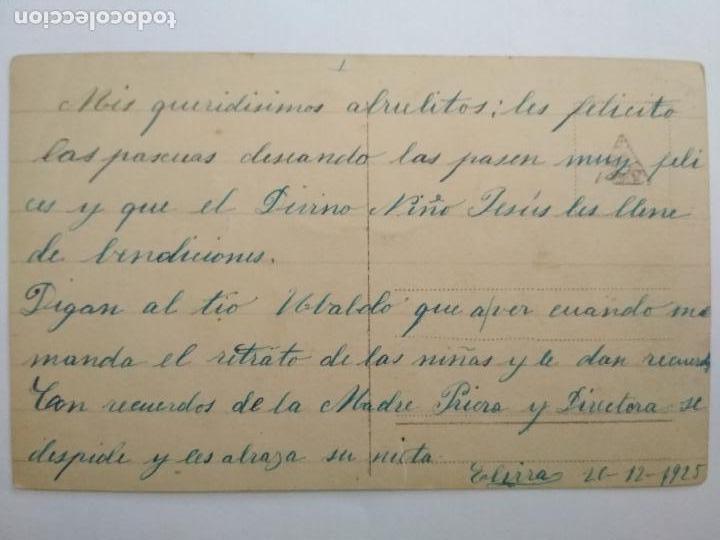 todocoleccion
Mis queridisimos abuelitos; les felicito
las pascuas deseando las pasen muy feli
ces y que el Divino Niño Jesús les llene
de bendiciones.
Digan al tío Ubaldo que a/ver cuando me
manda el retrato de las niñas y le dan recuerdos
Con recuerdos de la Madre Priora y Directora se
despide y les abraza su nieta
20-12-1925